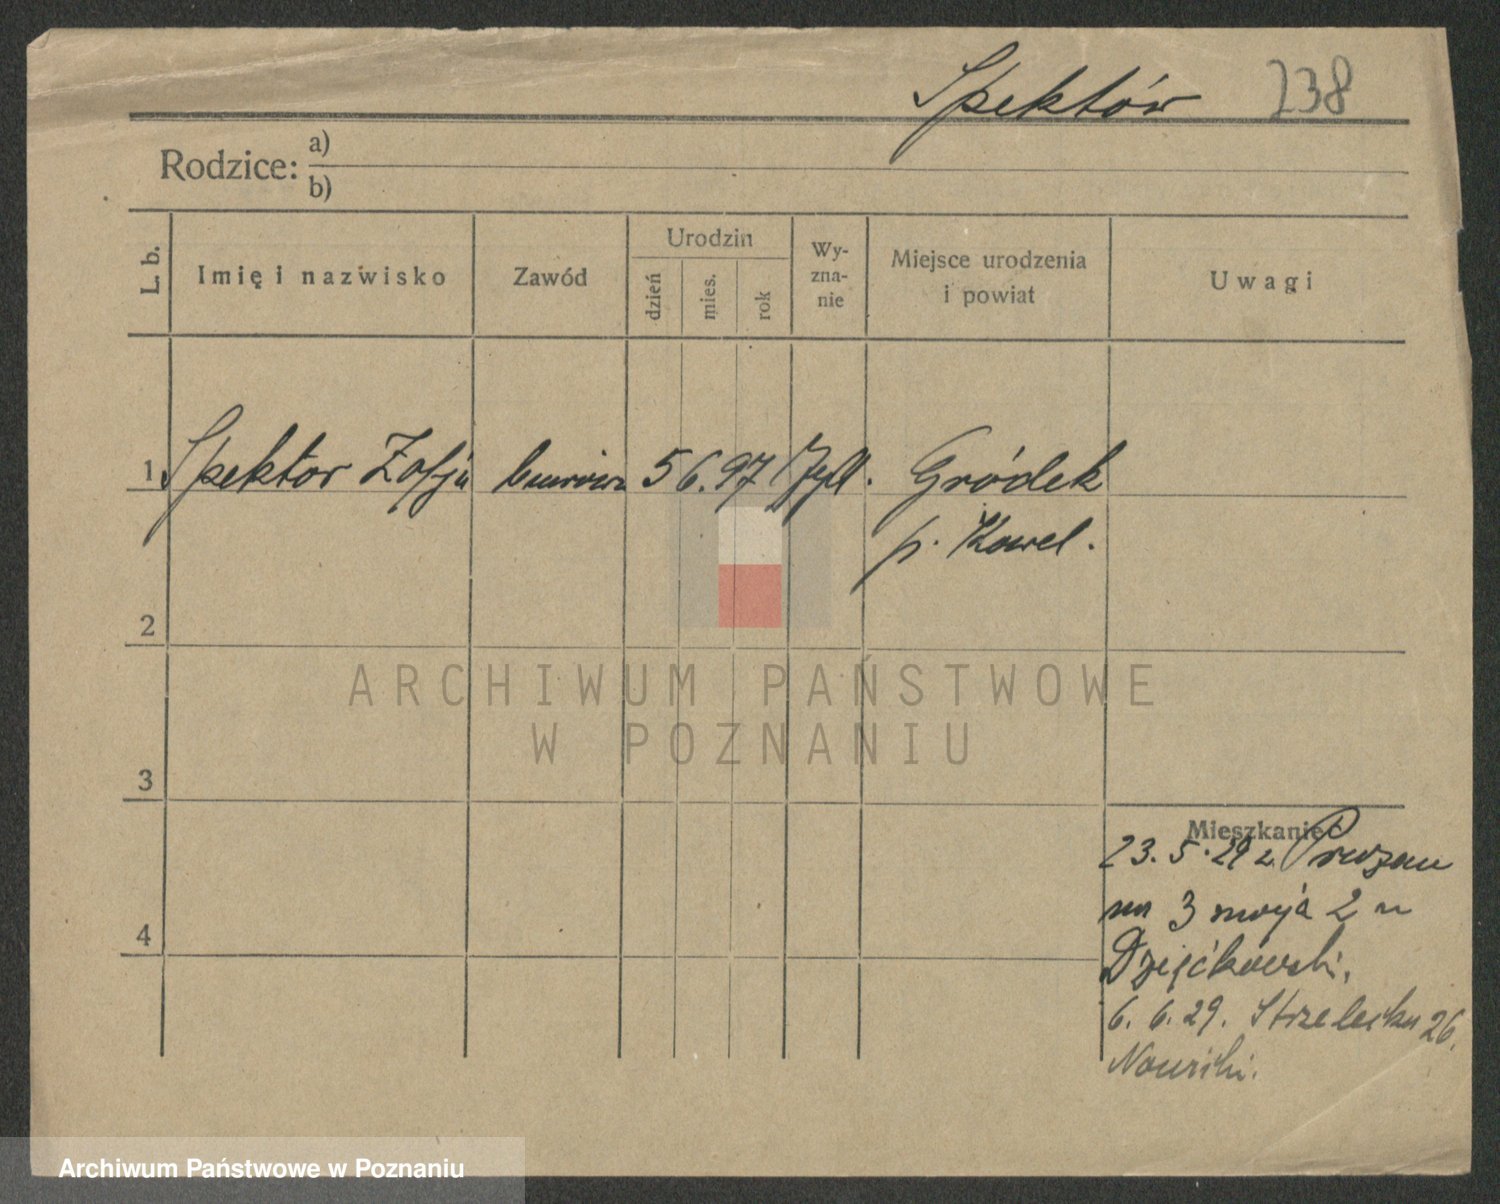 Spektór 238
Rodzice: a)
b)
L. b. Imię i nazwisko Zawód Urodzin dzień mies. rok Wy-zna-nie Miejsce urodzenia i powiat Uwagi
1 Spektor Zofja 5 6. 97 Gródek
p. Kowel.
2
ARCHIWUM PAŃSTWOWE
W POZNANIU
3
Mieszkanie:
23. 5. 29 z
3 maja 2
4
6. 6. 29. Strzelecka 26.
Archiwum Państwowe w Poznaniu